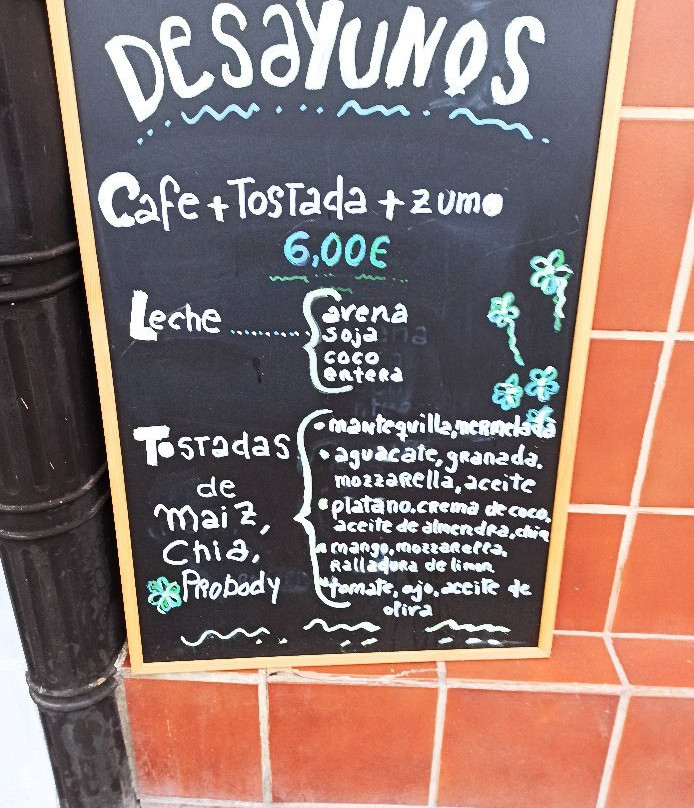 DESAYUNOS
Cafe + Tostada + zumo
6,00€
Leche ........
avena
soja
coco
entera
Tostadas
de
maiz,
Chia,
Probody
• mantequilla, mermelada
• aguacate, granada.
mozzarella, aceite
• platano. crema de coco.
aceite de almendra, chia
• mango, mozzarella.
Ralladura de limon
• tomate, ajo, aceite de
oliva